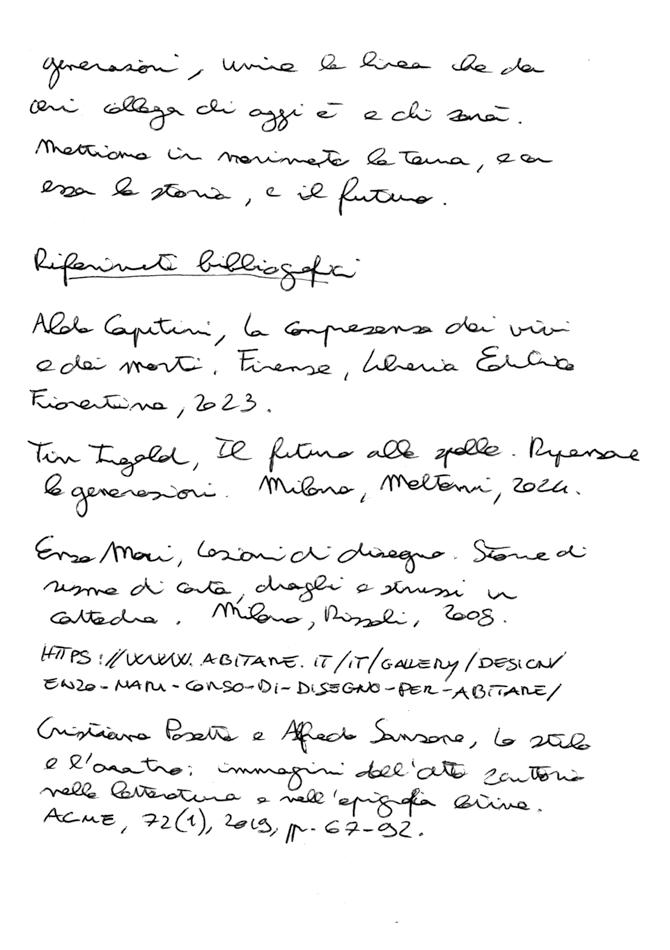 generazioni, unire la linea che da
ieri collega chi oggi è e chi sarà.
Mettiamo in movimento la terra, e con
essa la storia, e il futuro.
Riferimenti bibliografici
Aldo Capitini, La compresenza dei vivi
e dei morti. Firenze, Libreria Editrice
Fiorentina, 2023.
Tim Ingold, Il futuro alle spalle. Ripensare
le generazioni. Milano, Meltemi, 2024.
Enzo Mari, Lezioni di disegno. Storie di
risme di carta, draghi e struzzi in
cattedra. Milano, Rizzoli, 2008.
HTTPS://WWW.ABITARE.IT/IT/GALLERY/DESIGN/
ENZO-MARI-CORSO-DI-DISEGNO-PER-ABITARE/
Cristiana Pasetto e Alfredo Sansone, Lo stilo
e l'aratro: immagini dell'atto scrittorio
nella letteratura e nell'epigrafia latina.
ACME, 72(1), 2019, pp. 67-92.